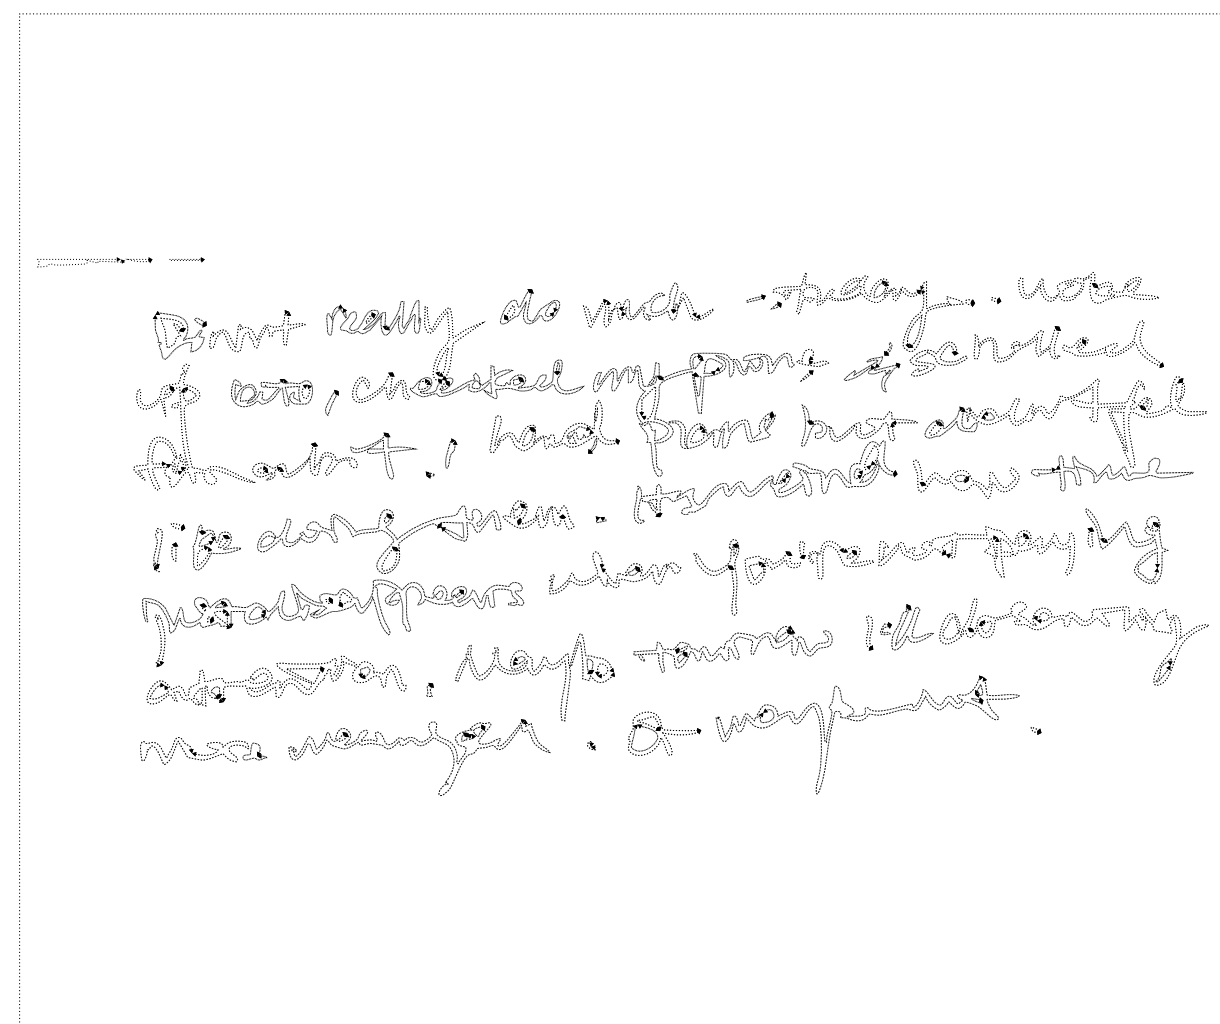 Didn't really do much today. woke
up late, checked my phone, & scrolled
for a bit, had plans but didn't feel
like doing them. It's weird how time
just disappears when you're not paying
attention. Maybe tomorrow I'll do something
more meaningful. Or maybe not.